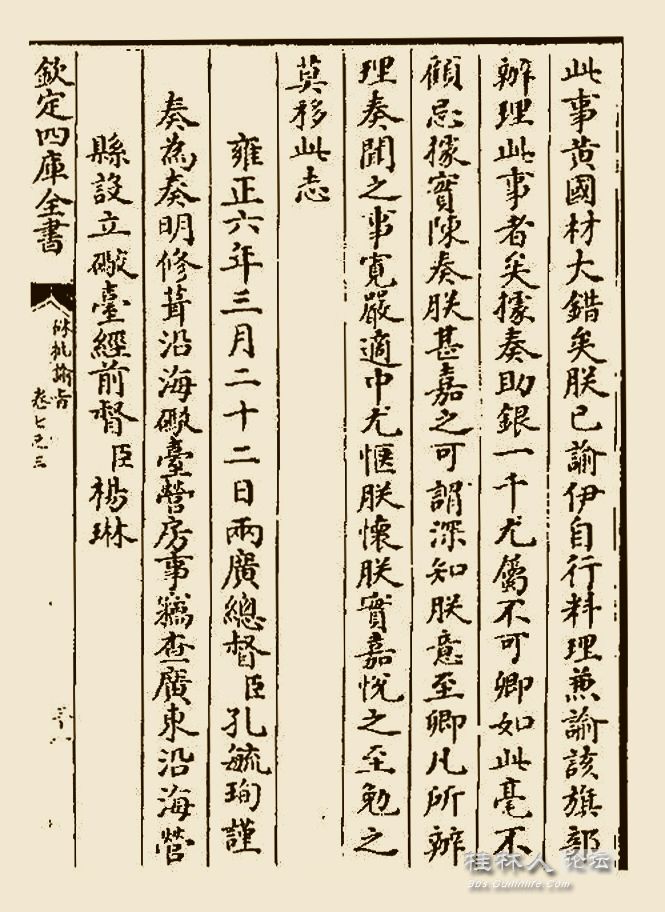 此事黃國材大錯矣朕已諭伊自行料理兼諭該旗部
辦理此事者矣據奏助銀一千尤屬不可卿如此毫不
顧忌據實陳奏朕甚嘉之可謂深知朕意至卿凡所辦
理奏聞之事寛嚴適中尤愜朕懷朕實嘉悅之至勉之
莫移此志
雍正六年三月二十二日兩廣總督臣孔毓珣謹
奏為奏明修葺沿海礮臺營房事竊查廣東沿海營
縣設立礮臺經前督臣楊琳
欽定四庫全書
硃批諭旨
卷七之三
桂林人论坛